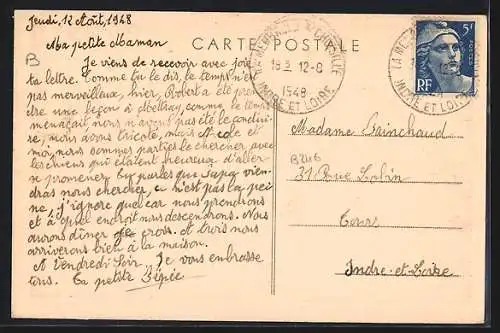 Jeudi, 12 Août, 1948
CARTE POSTALE
Ma petite Maman
B
Je viens de recevoir avec joie
ta lettre. Comme tu le dis, le temps n'est
pas merveilleux, hier, Robert a été prendre
une leçon à Mettray, comme le temps
menaçait, nous n'avons pas été le conduire,
nous avons tricoté, mais Nicole et
moi, nous sommes parties le chercher, avec
les chiens qui étaient heureux d'aller
se promener. Tu parles que Papa viendras
nous chercher, ce n'est pas la peine,
j'ignore quel car nous prendrons
et à quel endroit nous descendrons. Nous
aurons dîner je crois. A trois nous
arriverons bien à la maison.
A Vendredi Soir. Je vous embrasse
tous. Ta petite
18 12-8
1948
INDRE ET LOIRE
5F
POSTES
RF
INDRE ET LOIRE
Madame
B246
31 Rue
Tours
Indre-et-Loire